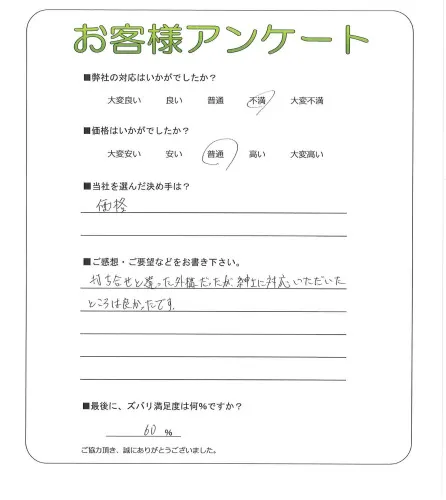 お客様アンケート
■弊社の対応はいかがでしたか？
大変良い 良い 普通 不満 大変不満
■価格はいかがでしたか？
大変安い 安い 普通 高い 大変高い
■当社を選んだ決め手は？
価格
■ご感想・ご要望などをお書き下さい。
打ち合せと違った外構だったが、紳士に対応いただいた
ところは良かったです。
■最後に、ズバリ満足度は何％ですか？
60 %
ご協力頂き、誠にありがとうございました。